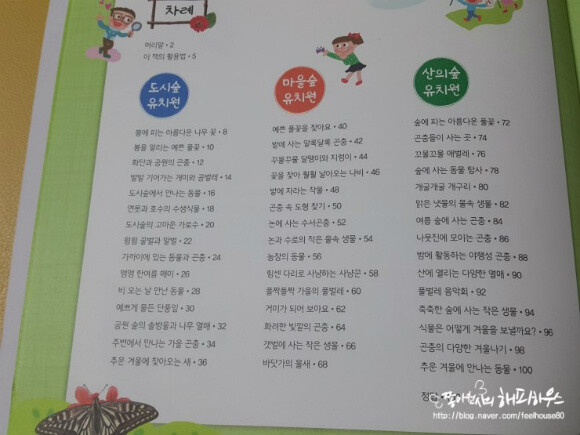 차례
머리말 • 2
이 책의 활용법 • 5
도시숲
유치원
봄에 피는 아름다운 나무 꽃 • 8
봄을 알리는 예쁜 풀꽃 • 10
화단과 공원의 곤충 • 12
발발 기어가는 개미와 공벌레 • 14
도시숲에서 만나는 동물 • 16
연못과 호수의 수생식물 • 18
도시숲의 고마운 가로수 • 20
윙윙 꿀벌과 말벌 • 22
가까이에 있는 동물과 곤충 • 24
맴맴 한여름 매미 • 26
비 오는 날 만난 동물 • 28
예쁘게 물든 단풍잎 • 30
공원 숲의 솔방울과 나무 열매 • 32
주변에서 만나는 가을 곤충 • 34
추운 겨울에 찾아오는 새 • 36
마을숲
유치원
예쁜 풀꽃을 찾아요 • 40
밭에 사는 알록달록 곤충 • 42
꾸물꾸물 달팽이와 지렁이 • 44
꽃을 찾아 훨훨 날아오는 나비 • 46
밭에 자라는 작물 • 48
곤충 속 도형 찾기 • 50
논에 사는 수서곤충 • 52
논과 수로의 작은 물속 생물 • 54
농장의 동물 • 56
힘센 다리로 사냥하는 사냥꾼 • 58
폴짝폴짝 가을의 풀벌레 • 60
거미가 되어 보아요 • 62
화려한 빛깔의 곤충 • 64
갯벌에 사는 작은 생물 • 66
바닷가의 물새 • 68
산의숲
유치원
숲에 피는 아름다운 풀꽃 • 72
곤충들이 사는 곳 • 74
꼬물꼬물 애벌레 • 76
숲에 사는 동물 탐사 • 78
개굴개굴 개구리 • 80
맑은 냇물의 물속 생물 • 82
여름 숲에 사는 곤충 • 84
나뭇진에 모이는 곤충 • 86
밤에 활동하는 야행성 곤충 • 88
산에 열리는 다양한 열매 • 90
풀벌레 음악회 • 92
축축한 숲에 사는 작은 생물 • 94
식물은 어떻게 겨울을 보낼까요? • 96
곤충의 다양한 겨울나기 • 98
추운 겨울에 만나는 동물 • 100
해피하우스
http://blog.naver.com/feelhouse80